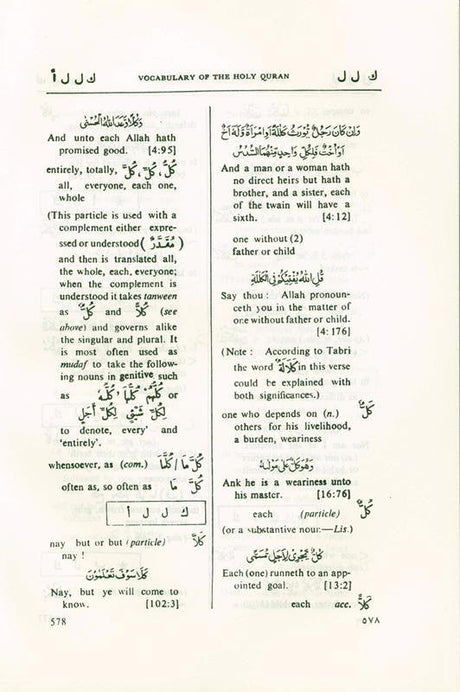 ك ل ل
VOCABULARY OF THE HOLY QURAN
ك ل ل أ
وَاِنْ كَانَ رَجُلٌ يُّوْرَثُ كَلٰلَةً اَوِ امْرَاَةٌ وَّلَهٗٓ اَخٌ
اَوْ اُخْتٌ فَلِكُلِّ وَاحِدٍ مِّنْهُمَا السُّدُسُ
And a man or a woman hath
no direct heirs but hath a
brother, and a sister, each
of the twain will have a
sixth. [4:12]
one without (2)
father or child
قُلِ اللّٰهُ يُفْتِيْكُمْ فِي الْكَلٰلَةِ
Say thou : Allah pronoun-
ceth you in the matter of
one without father or child.
[4:176]
(Note : According to Tabri
the word كَلَالَةٌ in this verse
could be explained with
both significances.)
one who depends on (n.) كَلٌّ
others for his livelihood,
a burden, weariness
وَهُوَ كَلٌّ عَلٰى مَوْلٰىهُ
Ank he is a weariness unto
his master. [16:76]
each (particle) كُلٌّ
(or a substantive noun—Lis.)
كُلٌّ يَّجْرِيْ لِاَجَلٍ مُّسَمًّى
Each (one) runneth to an app-
ointed goal. [13:2]
each acc. كُلاًّ
وَكُلًّا وَّعَدَ اللّٰهُ الْحُسْنٰى
And unto each Allah hath
promised good. [4:95]
entirely, totally, كُلُّ، كُلِّ، كُلَّ
all, everyone, each one,
whole
(This particle is used with a
complement either expre-
ssed or understood ( مُقَدَّرٌ )
and then is translated all,
the whole, each, everyone;
when the complement is
understood it takes tanween
as كُلٌّ and كُلاًّ (see
above) and governs alike
the singular and plural. It
is most often used as
mudaf to take the follow-
ing nouns in genitive such
as كُلُّهُمْ كُلُّهَا كُلُّهُ or
لِكُلِّ شَيْءٍ لِكُلِّ أَجَلٍ
to denote, every' and
'entirely'.
whensoever, as (com.) كُلَّ مَا / كُلَّمَا
often as, so often as كُلَّ مَا
ك ل ل أ
nay but or but (particle) كَلَّا
nay !
كَلَّا سَوْفَ تَعْلَمُوْنَ
Nay, but ye will come to
know. [102:3]
578
٥٧٨